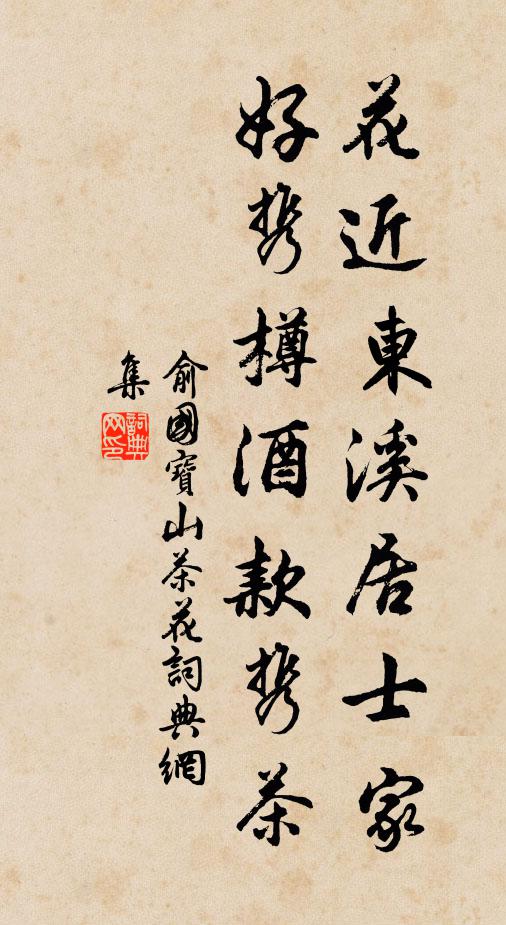 花近東溪居士家
好携樽酒款携茶
俞國寶山茶花詞典網
集
詞典
网印